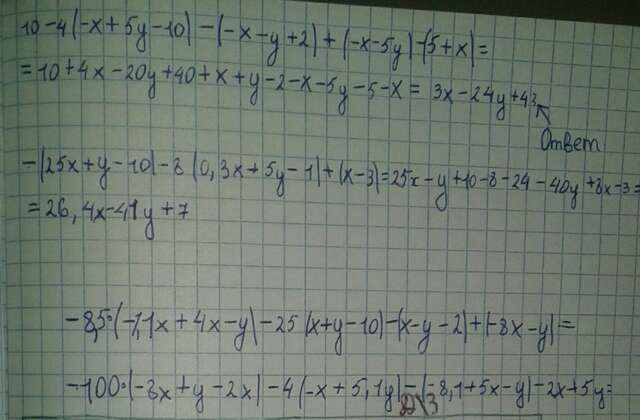 10-4(-x+5y-10)-(-x-y+2)+(-x-5y)-(5+x)=
=10+4x-20y+40+x+y-2-x-5y-5-x= 3x-24y+43
Ответ
-(25x+y-10)-8(0,3x+5y-1)+(x-3)=25x-y+10-8-24-40y+8x-3=
=26,4x-41y+7
-8,5·(-1,1x+4x-y)-25(x+y-10)-(x-y-2)+(-8x-y)=
-100·(-3x+y-2x)-4(-x+5,1y)-(-8,1+5x-y)-2x+5y=
Д/З